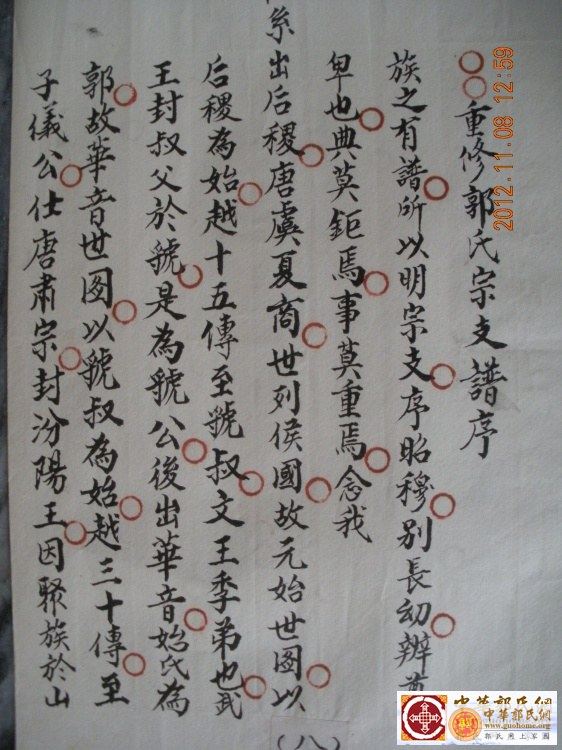 重修郭氏宗支譜序
族之有譜所以明宗支序昭穆别長幼辨尊
卑也典莫鉅焉事莫重焉念我
系出后稷唐虞夏商世列侯國故元始世图以
后稷為始越十五傳至虢叔文王季弟也武
王封叔父於虢是為虢公後出華音始氏為
郭故華音世图以虢叔為始越三十傳至
子儀公仕唐肃宗封汾陽王因聚族於山
(八)
2012.11.08 12:59
中華郭氏網
中華郭氏網
www.guohome.org
郭氏網上家園